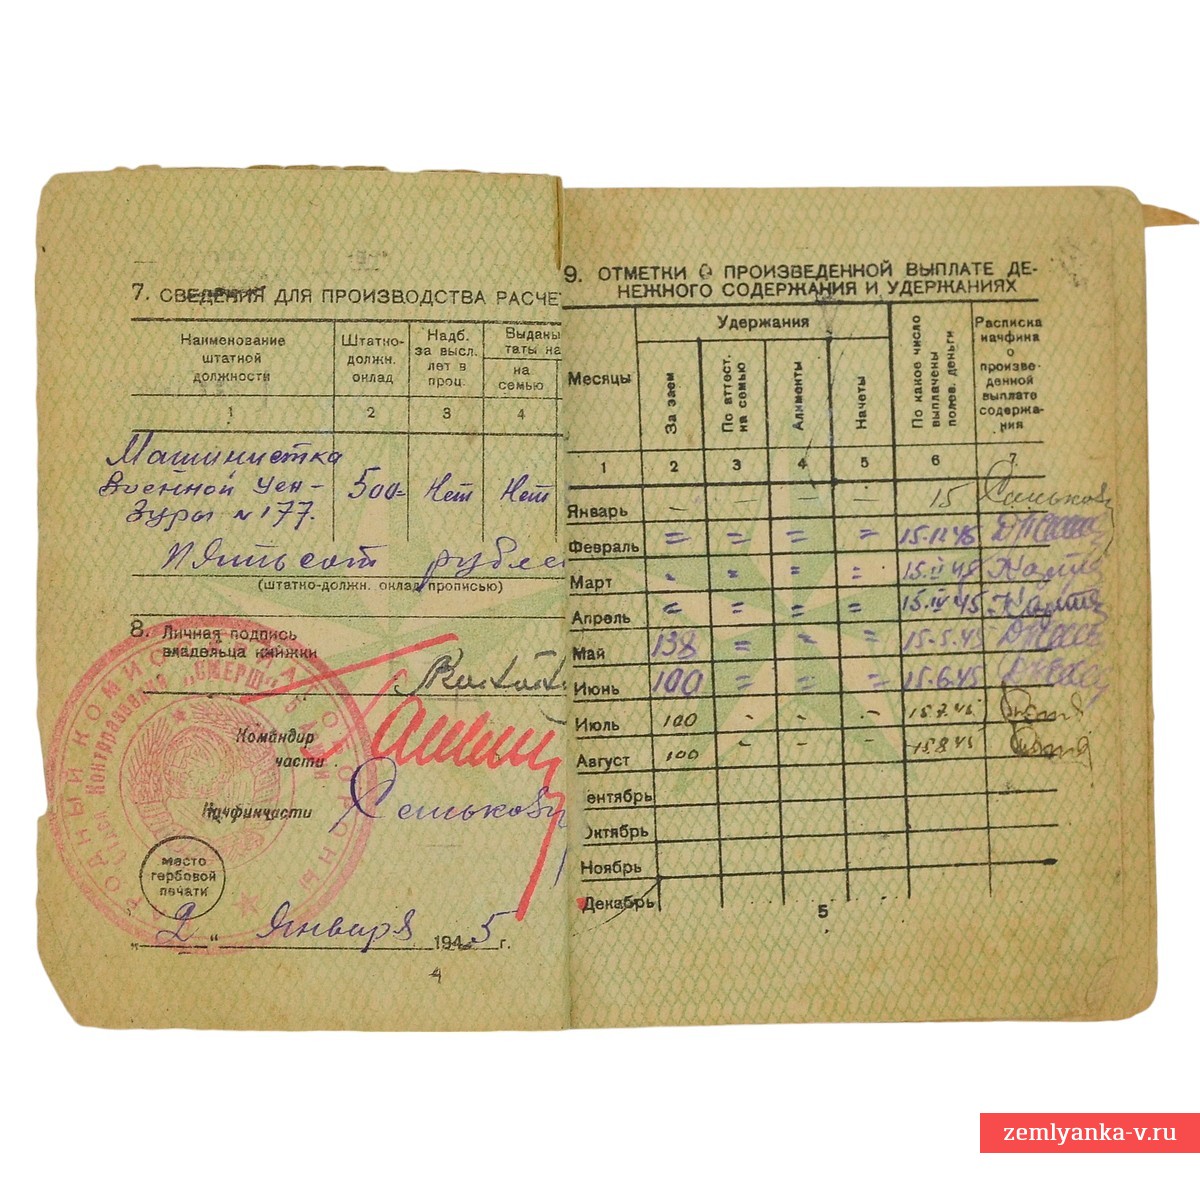 7. СВЕДЕНИЯ ДЛЯ ПРОИЗВОДСТВА РАСЧЕ
Наименование штатной должности
Штатно-должн. оклад
Надб. за высл. лет в проц.
Выданы
таты на
на семью
1 2 3 4
Машинистка
Военной Цен-
зуры № 177.
500=
Нет
Нет
Пятьсот рубле
(штатно-должн. оклад прописью)
8. Личная подпись
владельца книжки
Командир
части
Начфинчасти
Сенькова
место
гербовой
печати
НАРОДНЫЙ КОМИССАРИАТ ОБОРОНЫ
Контрразведки „СМЕРШ“ 5
„2“ Января 1945 г.
4
9. ОТМЕТКИ О ПРОИЗВЕДЕННОЙ ВЫПЛАТЕ ДЕ-
НЕЖНОГО СОДЕРЖАНИЯ И УДЕРЖАНИЯХ
Месяцы
Удержания
За заем
По аттест. на семью
Алименты
Начеты
По какое число выплачены полев. деньги
Расписка начфина о произве-денной выплате содержа-ния
1 2 3 4 5 6 7
Январь – – – – 15 Сенькова
Февраль = = = = 15.II.45
Март " = = = 15.III.45
Апрель = = = = 15.IV.45
Май 138 = = = 15.5.45
Июнь 100 = = = 15.6.45
Июль 100 - - - 15.7.45
Август 100 - - - 15.8.45
ентябрь
Октябрь
Ноябрь
Декабрь
5
zemlyanka-v.ru